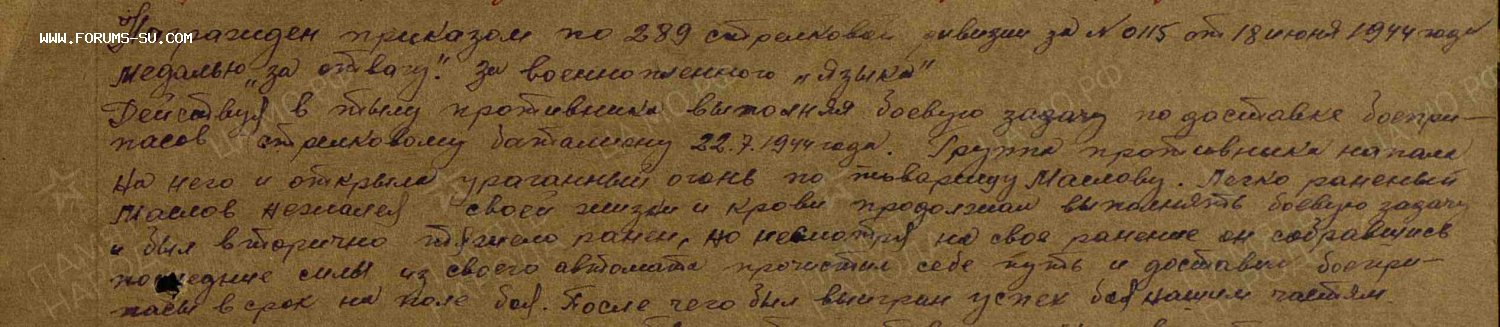 www.forums-su.com
Награжден приказом по 289 стрелковой дивизии за №0115 от 18 июня 1944 года
медалью „за отвагу". За военнопленного „языка"
Действуя в тылу противника выполняя боевую задачу по доставке боепри-
пасов стрелковому баталиону 22.7.1944 года. Группа противника напала
на него и открыла ураганный огонь по товарищу Маслову. Легко раненый
Маслов нежалея своей жизни и крови продолжал выполнять боевую задачу
и был вторично тяжело ранен, но несмотря на свое ранение он собравшись
последние силы из своего автомата прочистил себе путь и доставил боепри-
пасы в срок на поле боя. После чего был выигран успех боя нашим частям.